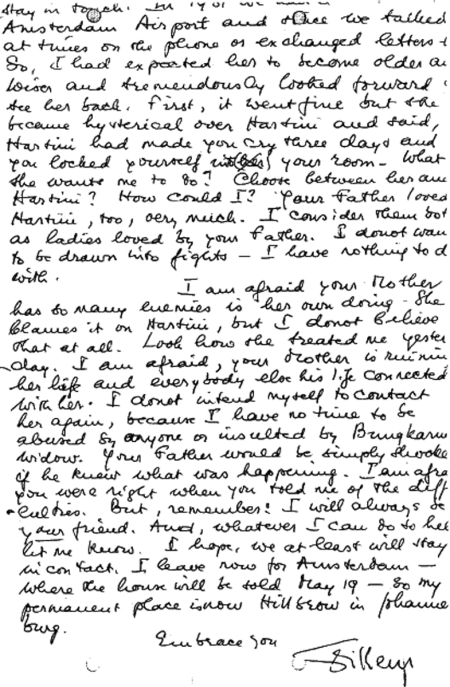 stay in touch. In 19
Amsterdam Airport and since we talked
at times on the phone or exchanged letters
So, I had expected her to become older an
wiser and tremendously looked forward
see her back. First, it went fine but she
became hysterical over Hartini and said,
Hartini had made you cry three days and
you locked yourself your room – What
she wants me to do? Choose between her an
Hartini? How could I? Your Father loved
Hartini, too, very much. I consider them bot
as ladies loved by your Father. I donot wan
to be drawn into fights – I have nothing to d
with.
I am afraid your Mother
has so many enemies is her own doing. She
blames it on Hartini, but I donot believe
that at all. Look how she treated me yester
day. I am afraid, your Mother is ruinin
her life and everybody else his life connected
with her. I donot intend myself to contact
her again, because I have no time to be
abused by anyone or insulted by Bungkarno
widow. Your Father would be simply shocke
if he knew what was happening. I am afra
you were right when you told me of the diff
-culties. But, remember! I will always be
your friend. And, whatever I can do to hel
let me know. I hope, we at least will stay
in contact. I leave now for Amsterdam –
where the house will be sold May 19 – so my
permanent place is now Hillbrow in Johanne
burg.
Embrace you